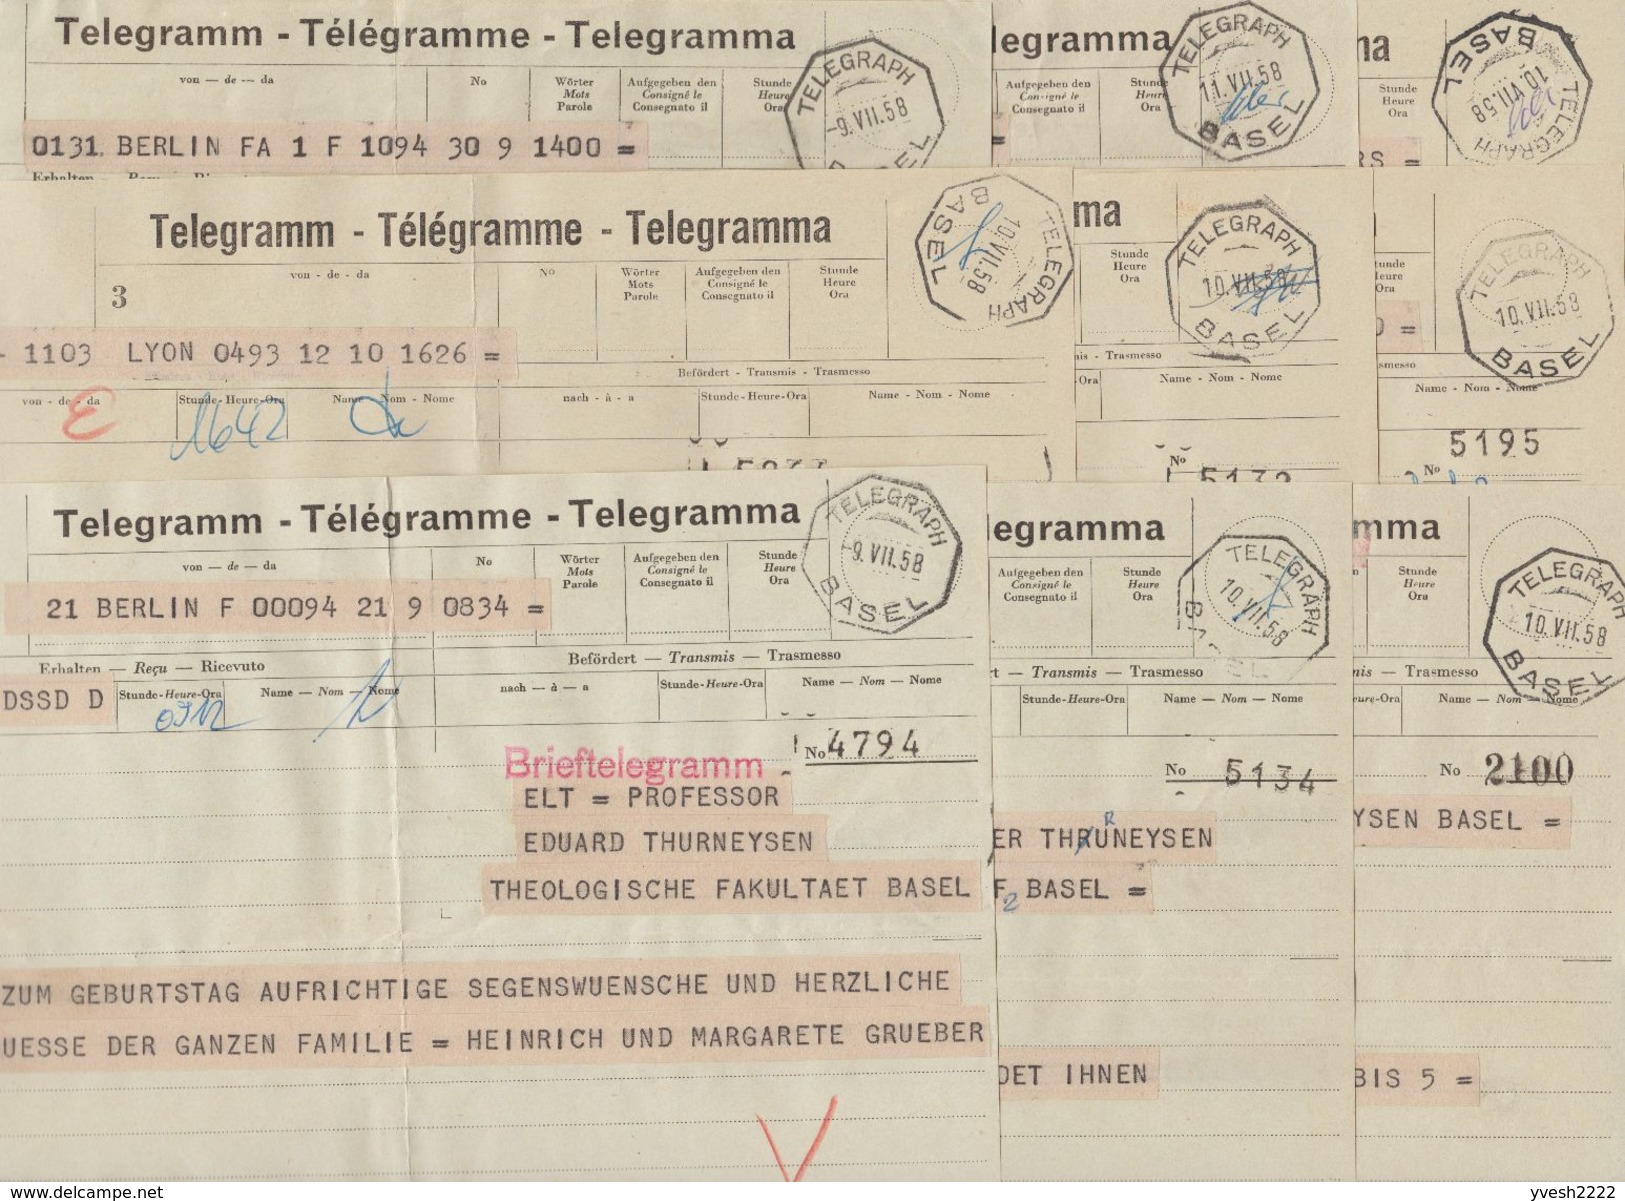 Telegramm - Télégramme - Telegramma
von — de — da
No
Wörter
Mots
Parole
Aufgegeben den
Consigné le
Consegnato il
Stunde
Heure
Ora
TELEGRAPH
-9.VII.58
0131 BERLIN FA 1 F 1094 30 9 1400 =
legramma
Aufgegeben den
Consigné le
Consegnato il
Ora
TELEGRAPH
11.VII.58
BASEL
na
Stunde
Heure
Ora
TELEGRAPH
10.VII.58
BASEL
RS =
Telegramm - Télégramme - Telegramma
von - de - da
3
No
Wörter
Mots
Parole
Aufgegeben den
Consigné le
Consegnato il
Stunde
Heure
Ora
TELEGRAPH
10.VII.58
BASEL
- 1103 LYON 0493 12 10 1626 =
Befördert - Transmis - Trasmesso
von - de - da
Stunde-Heure-Ora
Name Nom - Nome
nach - à - a
Stunde-Heure-Ora
Name - Nom - Nome
E
1642
ma
Stunde
Heure
Ora
TELEGRAPH
10.VII.58
BASEL
mis - Trasmesso
Ora
Name - Nom - Nome
No
5172
tunde
Heure
Ora
TELEGRAPH
10.VII.58
BASEL
0 =
smesso
Name - Nom - Nome
5195
No
Telegramm - Télégramme - Telegramma
von — de — da
No
Wörter
Mots
Parole
Aufgegeben den
Consigné le
Consegnato il
Stunde
Heure
Ora
TELEGRAPH
-9.VII.58
BASEL
21 BERLIN F 00094 21 9 0834 =
Erhalten — Reçu — Ricevuto
Befördert — Transmis — Trasmesso
DSSD D
Stunde-Heure-Ora
Name — Nom — Nome
nach — à — a
Stunde-Heure-Ora
Name — Nom — Nome
No 4794
Brieftelegramm
ELT = PROFESSOR
EDUARD THURNEYSEN
THEOLOGISCHE FAKULTAET BASEL
ZUM GEBURTSTAG AUFRICHTIGE SEGENSWUENSCHE UND HERZLICHE
UESSE DER GANZEN FAMILIE = HEINRICH UND MARGARETE GRUEBER
legramma
Aufgegeben den
Consigné le
Consegnato il
Stunde
Heure
Ora
TELEGRAPH
10.VII.58
BASEL
t — Transmis — Trasmesso
Stunde-Heure-Ora
Name — Nom — Nome
No 5134
R
ER THRUNEYSEN
F2 BASEL =
DET IHNEN
mma
Stunde
Heure
Ora
TELEGRAPH
10.VII.58
BASEL
nis — Trasmesso
eure-Ora
Name — Nom — Nome
No 2100
YSEN BASEL =
BIS 5 =
www.delcampe.net
yvesh2222